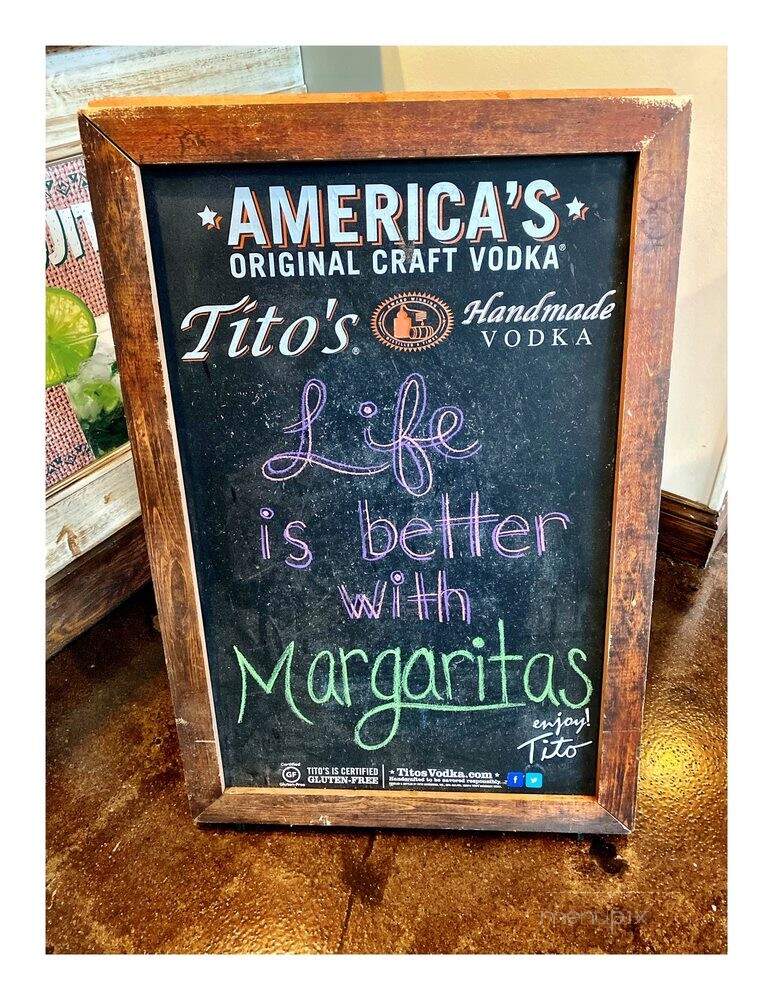 AMERICA'S
ORIGINAL CRAFT VODKA®
Tito's® Handmade
VODKA
Life
is better
with
Margaritas
enjoy!
Tito
Certified
GF
Gluten-Free
TITO'S IS CERTIFIED
GLUTEN-FREE
* TitosVodka.com *
Handcrafted to be savored responsibly.
menupix